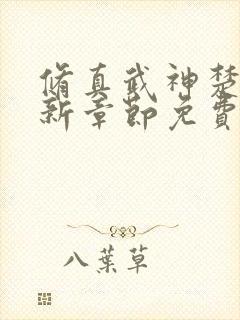 脩真武神楚
新章節免費
八葉草